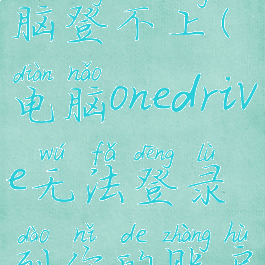 脑登不上(
diàn nǎo
电脑onedriv
wú fǎ dēng lù
e无法登录
dào nǐ de zhàng hù
到你的账户